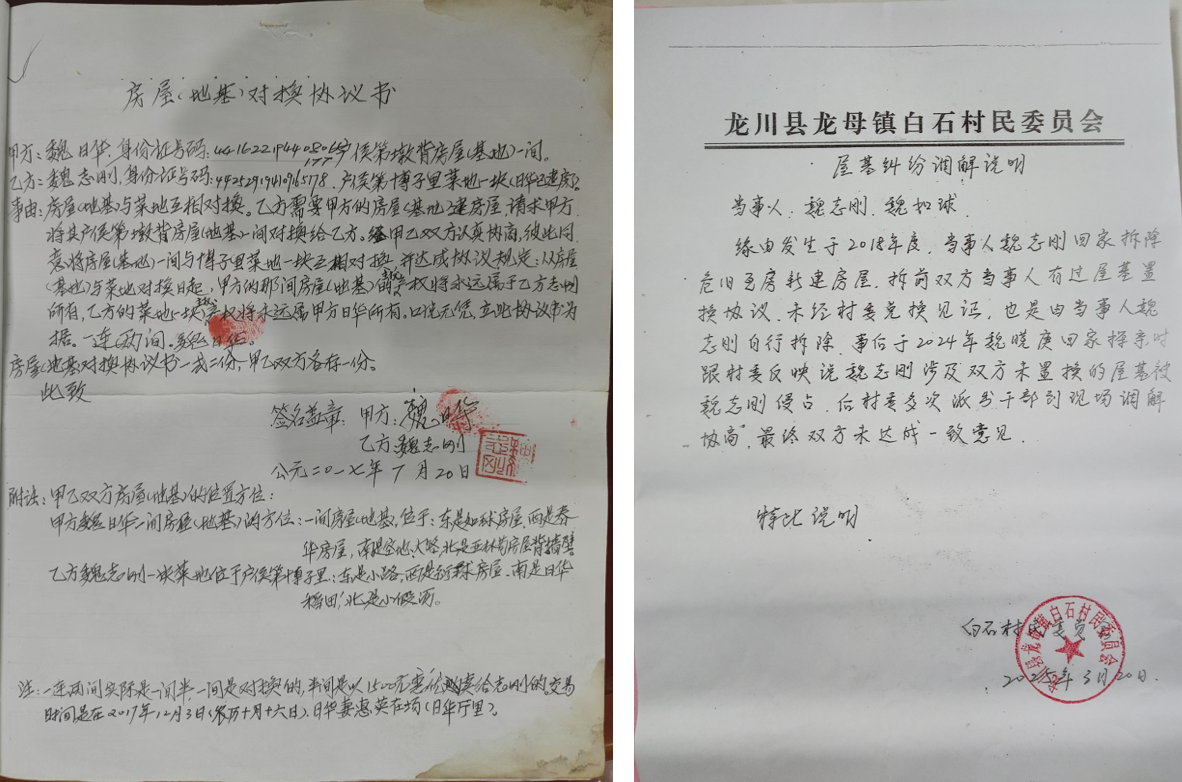 房屋(地基)对换协议书
甲方：魏日华，身份证号码：
户侯第墩背房屋(基地)一间。
乙方：魏志刚，身份证号码：
户侯第博子里菜地一块(日华已建房)。
事由：房屋(地基)与菜地互相对换。乙方需要甲方的房屋(基地)建房屋，请求甲方
将其户侯第墩背房屋(地基)一间对换给乙方。经甲乙双方认真协商，彼此同
意将房屋(基地)一间与博子里菜地一块互相对换，并达成协议规定：从房屋
(基地)与菜地对换日起，甲方的那间房屋(地基)权将永远属于乙方志刚
所有，乙方的菜地一块权将永远属甲方日华所有。口说无凭，立此协议书为
据。一连两间。
房屋(地基)对换协议书一式二份，甲乙双方各存一份。
此致
签名盖章：甲方：魏日华
乙方：魏志刚
公元二〇一七年7月20日
附注：甲乙双方房屋(地基)的位置方位：
甲方魏日华一间房屋(地基)的方位：一间房屋(地基)，位于：东是如球房屋，西是春
华房屋，南是空地、大路，北是亚林等房屋背墙
乙方魏志刚一块菜地位于户侯第博子里：东是小路，西是球房屋，南是日华
稻田，北是小
注：一连两间实际是一间半，一间是对换的，半间是以1500元卖给志刚的，交易
时间是在2017年12月3日(农历十月十六日)，日华妻惠英在场(日华厅里)。
龙川县龙母镇白石村民委员会
屋基纠纷调解说明
当事人：魏志刚、魏如球
缘由发生于2018年度，当事人魏志刚回家拆除
危旧瓦房新建房屋，拆前双方当事人有过屋基置
换协议，未经村委兑换见证，也是由当事人魏
志刚自行拆除，事后于2024年魏曉庚回家探亲时
跟村委反映说魏志刚涉及双方未置换的屋基被
魏志刚侵占，后村委多次派出干部到现场调解
协商，最终双方未达成一致意见。
特此说明
白石村民委员会
2025年3月20日